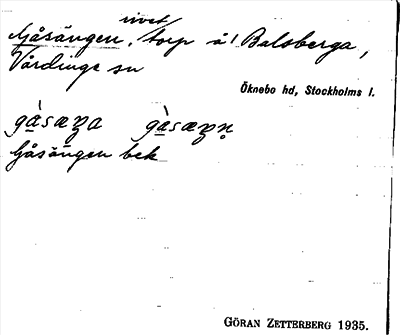 rivet
Gåsängen, torp å Balsberga,
Vårdinge sn
Öknebo hd, Stockholms l.
Gåsängen bek
GÖRAN ZETTERBERG 1935.